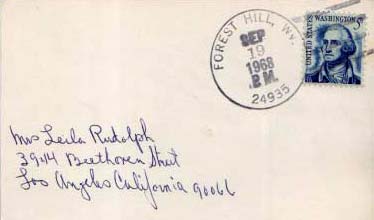 FOREST HILL, W.V.
SEP
19
1968
P.M.
24935
WASHINGTON 5¢
UNITED STATES
Mrs Leila Rudolph
3944 Beethoven Street
Los Angeles California 90066